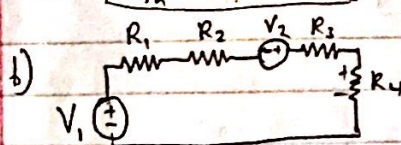 R₁ R₂ V₂ R₃
b)
+
-
R₄
V₁
+
-